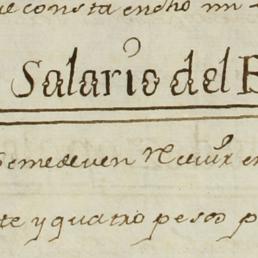 de consta en dho mi
Salario del
Se me deven
te y quatro pesos p